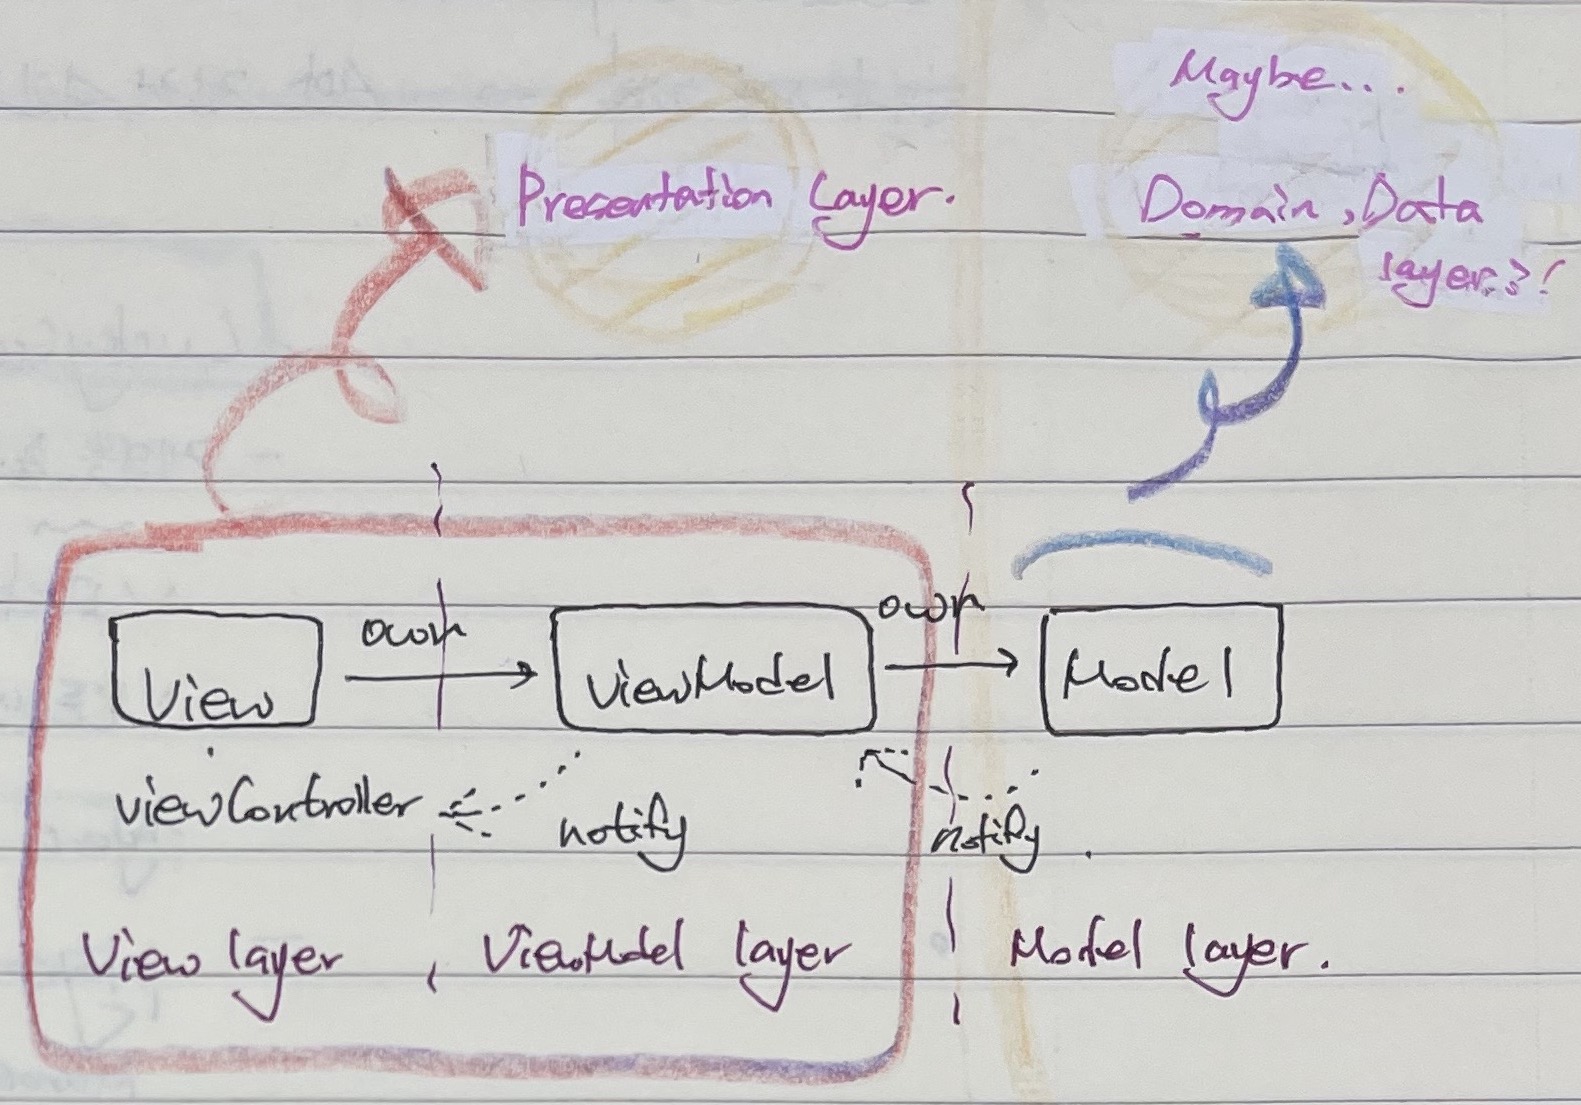 Maybe...
Presentation Layer.
Domain, Data
layer?!
own
own
View
ViewModel
Model
viewController
notify
notify.
View layer
ViewModel layer
Model layer.